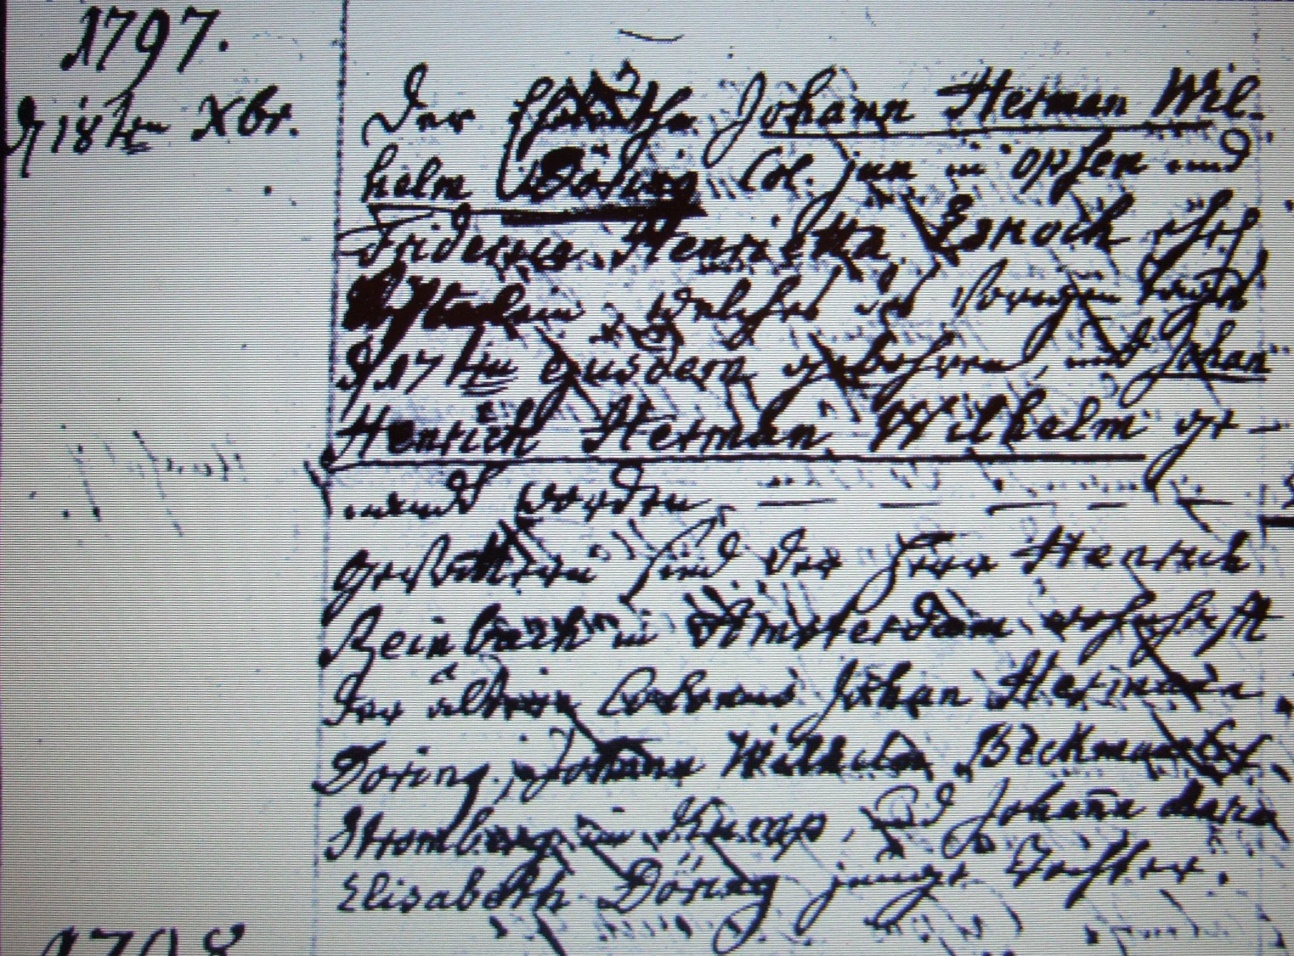 1797.
d 18ten Xbr.
der Johann Herman Wil-
helm Döring Col. jun in opsen und
Friderica Henrietta Esnoch ehel
welches des vorigen tages
d 17ten gebohren, und Johan
Henrich Herman Wilhelm ge-
nandt worden
Gevattern sind der Herr Henrich
Reinbach in Amsterdam wohnhafft
der ältere Colonus Johan Hermann
Döring, Johann Wilhelm Böckmann
Stromberg in und Johanna Maria
Elisabeth Döring junge Tochter.
1798